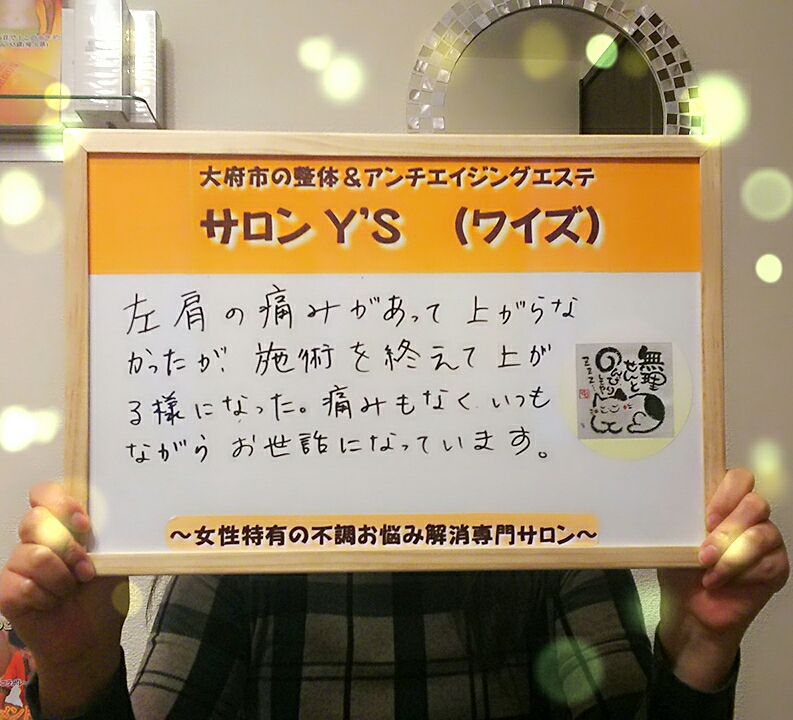 大府市の整体＆アンチエイジングエステ
サロン Y'S （ワイズ）
左肩の痛みがあって上がらな
かったが、施術を終えて上が
る様になった。痛みもなく、いつも
ながらお世話になっています。
無理
せんと
のんびり
～女性特有の不調お悩み解消専門サロン～